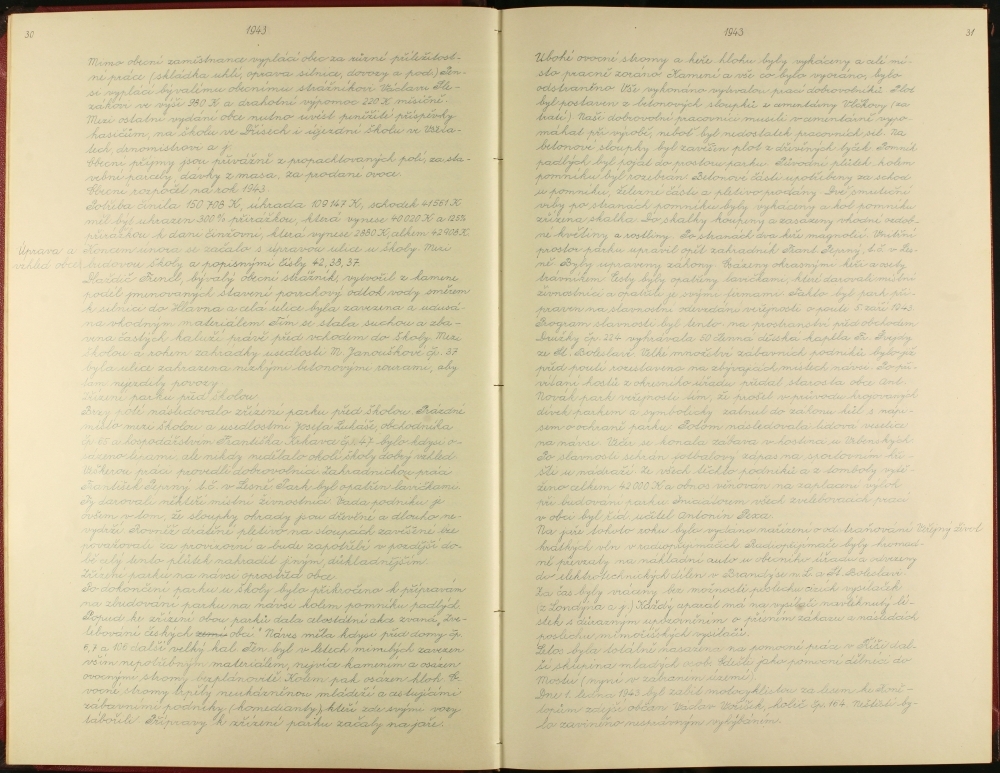 30
1943
Mimo obecní zaměstnance vyplácí obec za různé příležitost-
né práce (skládka uhlí, oprava silnice, dovozy a pod.) Pen-
si vyplácí bývalému obecnímu strážníkovi Václavu
ve výši 390 K a drahotní výpomoc 220 K měsíčně.
Mezi ostatní vydání obce nutno uvést peněžité příspěvky
hasičům, na školu ve Dřísech i újezdní školu ve
a j.
Obecní příjmy jsou převážně z propachtovaných polí, za sta-
vební parcely, dávky z masa, za prodané ovoce.
Obecní rozpočet na rok 1943.
Potřeba činila 150 708 K, úhrada 109 147 K, schodek 41561 K
měl být uhrazen 300% přirážkou, která vynese 40 020 K a 125%
přirážkou k dani činžovní, která vynese 2880 K, celkem 42 908 K.
Úprava a
vzhled obce.
Koncem února se začalo s úpravou ulice u školy. Mezi
budovou školy a popisnými čísly 42, 38, 37.
bývalý obecní strážník, vytvořil z kamene
podél jmenovaných stavení povrchový odtok vody směrem
k silnici do Hlavna a celá ulice byla zavezena a udusá-
na vhodným materiálem. Tím se stala suchou a zba-
vena častých kaluží právě před vchodem do školy. Mezi
školou a rohem zahrádky usedlosti N. Janouškové čp. 37
byla ulice zahrazena nízkými betonovými rourami, aby
tam nejezdily povozy.
Zřízení parku před školou.
Brzy poté následovalo zřízení parku před školou. Prázdné
místo mezi školou a usedlostmi Josefa obchodníka
čp. 45 a hospodářstvím Františka čp. 47 bylo kdysi o-
sázeno lipami, ale nikdy nedělalo okolí školy dobrý vzhled.
Veškerou práci provedli dobrovolníci. Zahradnickou práci
František Pepřný t.č. v Lesné. Park byl opatřen lavičkami.
Ty darovali někteří místní živnostníci. Vada podniku je
ovšem v tom, že sloupky ohrady jsou dřevěné a dlouho ne-
vydrží. Rovněž drátěné pletivo na sloupcích zavěšené lze
považovati za provizorní a bude zapotřebí v pozdější do-
bě celý tento plůtek nahradit jiným důkladnějším.
Zřízení parku na návsi uprostřed obce.
Po dokončení parku u školy bylo přikročeno k přípravám
na zbudování parku na návsi kolem pomníku padlých.
Popud ke zřízení obou parků dala celostátní akce zvaná „Zve-
lebování českých zemí obcí". Náves měla kdysi před domy čp.
6, 7 a 106 další velký kal. Ten byl v letech minulých zavezen
vším nepotřebným materiálem, nejvíce kamením a osázen
ovocnými stromy bezplánovitě. Kolem pak osázen hloh. O-
vocné stromy trpěly neukázněnou mládeží a cestujícími
zábavními podniky (komedianty), kteří zde svými vozy
tábořili. Přípravy k zřízení parku začaly na jaře.
1943
31
Ubohé ovocné stromy a keře hlohu byly vykáceny a celé mí-
sto pracně zoráno. Kamení a vše co bylo vyoráno, bylo
odstraněno. Vše vykonáno vytrvalou prací dobrovolníků. Plot
byl postaven z betonových sloupků z cementárny Vlčkovy (za
tratí). Naši dobrovolní pracovníci museli v cementárně vypo-
máhat při výrobě, neboť byl nedostatek pracovních sil. Na
betonové sloupky byl zavěšen plot z dřevěných tyček. Pomník
padlých byl pojat do prostoru parku. Původní plůtek kolem
pomníku byl rozebrán. Betonové části upotřebeny za schod
u pomníku, železné části a pletivo prodány. Dvě smuteční
vrby po stranách pomníku byly vykáceny a kol pomníku
zřízena skalka. Do skalky koupeny a zasazeny vhodné ozdob-
né květiny a rostliny. Po stranách dva keře magnolií. Vnitřní
prostor parku upravil opět zahradník Frant. Pepřný, t.č. v Le-
sné. Byly upraveny záhony. Osázeny okrasnými keři a osety
trávníkem. Cesty byly opatřeny lavičkami, které darovali místní
živnostníci a opatřili je svými firmami. Takto byl park při-
praven na slavnostní odevzdání veřejnosti o pouti 5. září 1943.
Program slavnosti byl tento: na prostranství před obchodem
čp. 224 vyhrávala 50 členná dětská kapela
ze St. Boleslavi. Velké množství zábavních podniků bylo již
před poutí rozestaveno na zbývajících místech návsi. Po při-
vítání hostů z okresního úřadu předal starosta obce Ant.
Novák park veřejnosti tím, že prošel v průvodu krojovaných
dívek parkem a symbolicky zabiul do záhonu kůl s nápi-
sem o ochraně parku. Potom následovala lidová veselice
na návsi. Večer se konala zábava v hostinci u Urbanských.
Po slavnosti sehrán fotbalový zápas na sportovním hři-
šti u nádraží. Ze všech těchto podniků a z tomboly vytě-
ženo celkem 42 000 K a obnos věnován na zaplacení výloh
při budování parku. Iniciátorem všech zvelebovacích prací
v obci byl řid. učitel Antonín Pexa.
Na jaře tohoto roku bylo vydáno nařízení o odstraňování
Veřejný život
krátkých vln v radiopřijímačích. Radiopřijímače byly hromad-
ně převzaty na nákladní auto u obecního úřadu a odvezeny
do elektrotechnických dílen v Brandýse n. L. a St. Boleslavi.
Za čas byly vráceny bez možnosti poslechu cizích vysílaček
(z Londýna a j.) Každý aparát má na vypínači navléknutý lí-
stek s důrazným upozorněním o přísném zákazu a následcích
poslechu mimoříšských vysílačů.
Letos byla totálně nasazena na pomocné práce v Říši dal-
ší skupina mladých osob. Odešli jako pomocní dělníci do
Mostu (nyní v záborovém území).
Dne 1. ledna 1943 byl zabit motocyklistou za lesem ke
zdejší občan Václav holič čp. 164. Neštěstí by-
lo zaviněno nesprávným vyhýbáním.